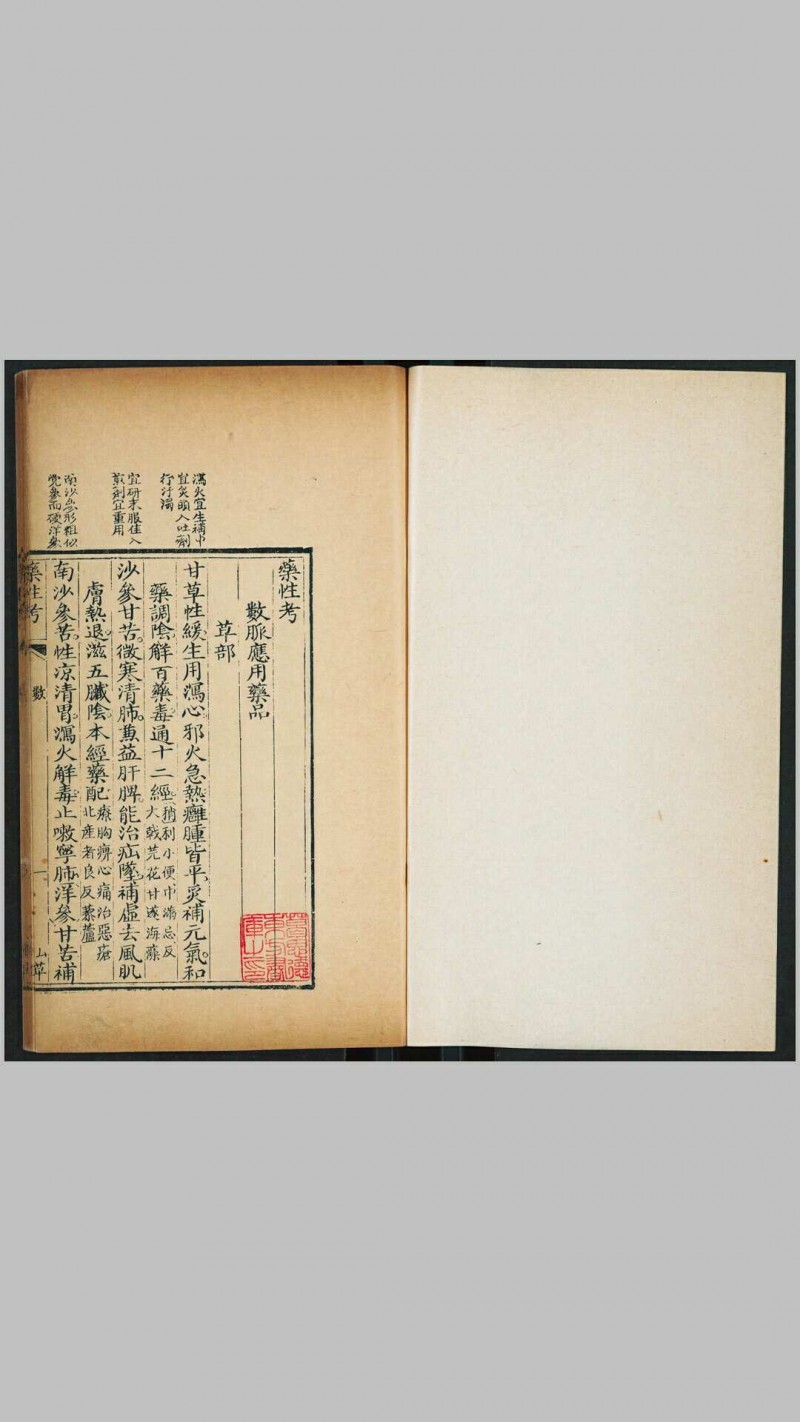 藥性考
數脈應用藥品
草部
瀉火宜生補中
宜炙頭入吐劑
行汙濁
甘草性緩生用瀉心邪火急熱癰腫皆平炙補元氣和
藥調陰解百藥毒通十二經稍利小便中滿忌反
大戟芫花甘遂海藻
宜研末服佳入
煎劑宜重用
沙參甘苦微寒清肺兼益肝脾能治疝墜補虛去風肌
膚熱退滋五臟陰本經藥配療胸痹心痛治惡瘡
北產者良反藜蘆
南沙參形粗似
黨參而硬洋參
南沙參苦性凉清胃瀉火解毒止嗽寧肺洋參甘苦補
藥性考
數
一
山草